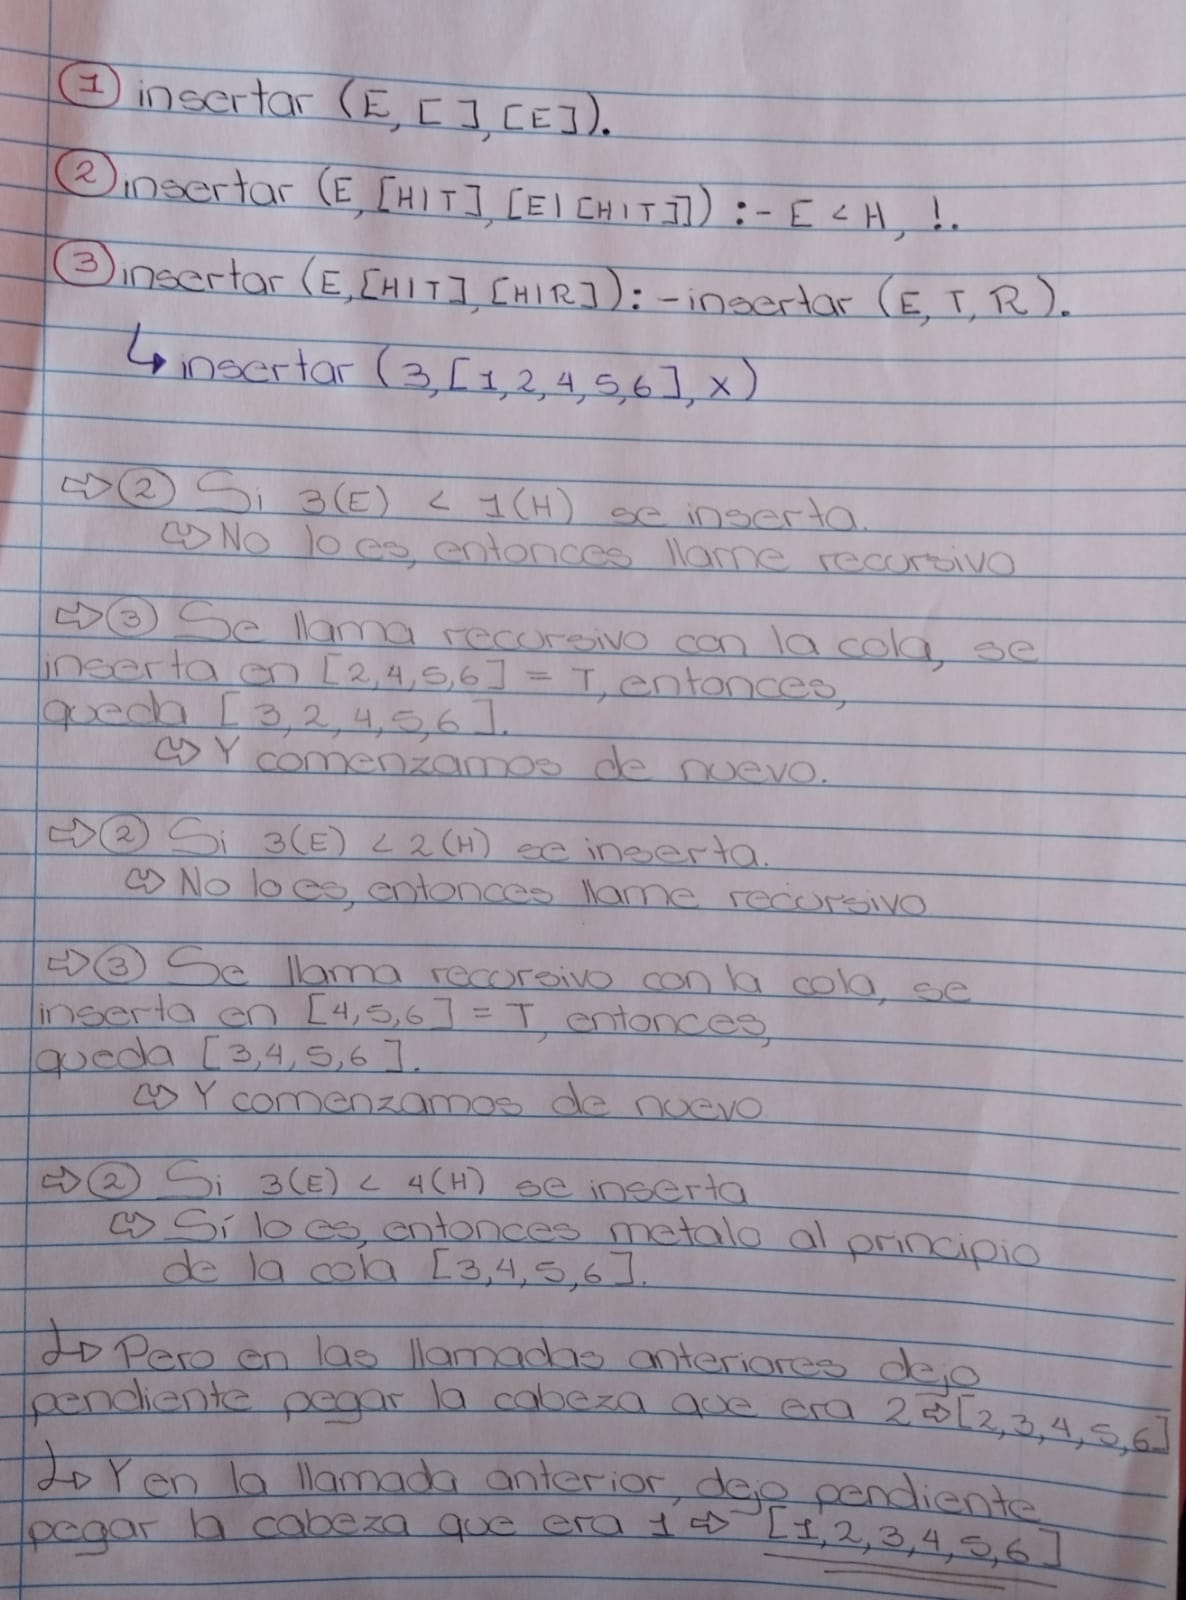 ① insertar (E, [ ], [E]).
② insertar (E, [H|T], [E|[H|T]]) :- E < H, !.
③ insertar (E, [H|T], [H|R]) :- insertar (E, T, R).
↳ insertar (3, [1, 2, 4, 5, 6], x)
⇨ ② Si 3(E) < 1(H) se inserta.
⇨ No lo es, entonces llame recursivo
⇨ ③ Se llama recursivo con la cola, se
inserta en [2, 4, 5, 6] = T, entonces,
queda [3, 2, 4, 5, 6].
⇨ Y comenzamos de nuevo.
⇨ ② Si 3(E) < 2(H) se inserta.
⇨ No lo es, entonces llame recursivo
⇨ ③ Se llama recursivo con la cola, se
inserta en [4, 5, 6] = T, entonces,
queda [3, 4, 5, 6].
⇨ Y comenzamos de nuevo
⇨ ② Si 3(E) < 4(H) se inserta
⇨ Sí lo es, entonces metalo al principio
de la cola [3, 4, 5, 6].
↳ Pero en las llamadas anteriores dejo
pendiente pegar la cabeza que era 2 ⇨ [2, 3, 4, 5, 6]
↳ Y en la llamada anterior, dejo pendiente
pegar la cabeza que era 1 ⇨ [1, 2, 3, 4, 5, 6]